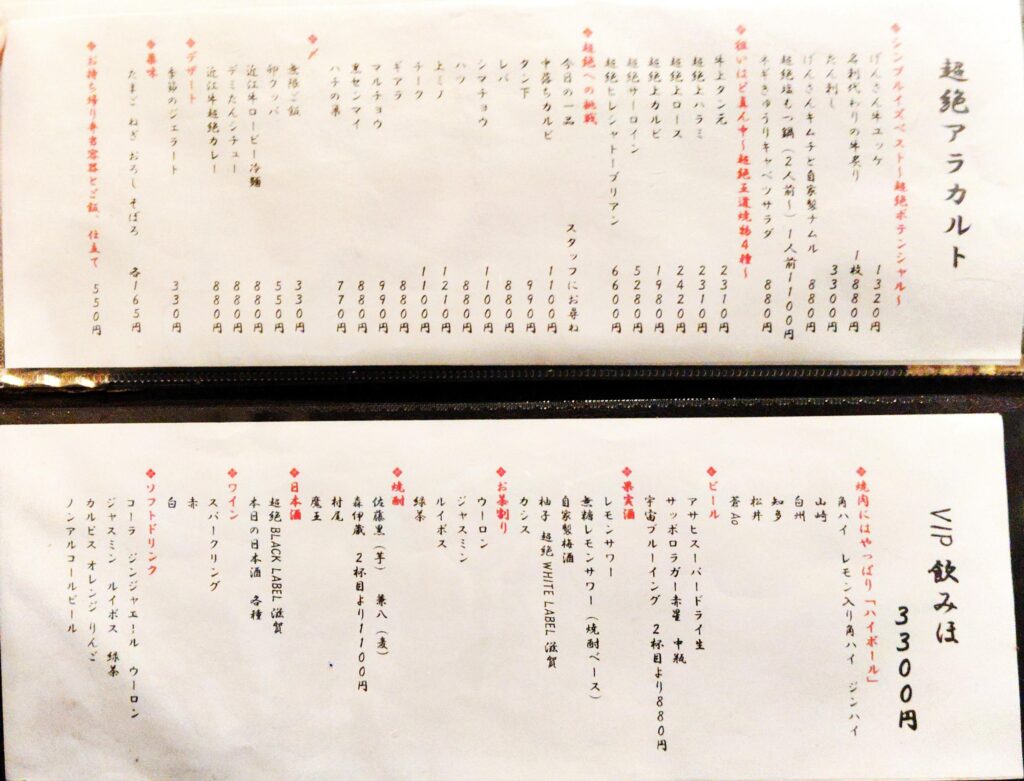 超絶アラカルト
❖シンプルイズベスト〜超絶ポテンシャル〜
げんさん牛ユッケ 1320円
名刺代わりの牛炙り 1枚880円
たん刺し 3300円
げんさんキムチと自家製ナムル 880円
超絶塩もつ鍋(2人前〜)1人前1100円
ネギきゅうりキャベツサラダ 880円
❖狙いはど真ん中〜超絶王道焼物4種〜
牛上タン元 2310円
超絶上ハラミ 2310円
超絶上ロース 2420円
超絶上カルビ 1980円
超絶サーロイン 5280円
超絶ヒレシャトーブリアン 6600円
❖超絶への挑戦
今日の一品 スタッフにお尋ね
中落ちカルビ 1100円
タン下 990円
レバ 880円
シマチョウ 1100円
ハツ 880円
上ミノ 1210円
チーク 1100円
ギアラ 880円
マルチョウ 990円
黒センマイ 880円
ハチの巣 770円
❖〆
無限ご飯 330円
卵クッパ 550円
近江牛ロービー冷麺 880円
デミたんシチュー 880円
近江牛超絶カレー 880円
❖デザート
季節のジェラート 330円
❖薬味
たまご ねぎ おろし そぼろ 各165円
❖お持ち帰り弁当容器とご飯、仕立て 550円
VIP飲みほ
3300円
❖焼肉にはやっぱり「ハイボール」
角ハイ レモン入り角ハイ ジンハイ
山崎
白州
知多
松井
蒼Ao
❖ビール
アサヒスーパードライ生
サッポロラガー赤星 中瓶
宇宙ブルーイング 2杯目より880円
❖果実酒
レモンサワー
無糖レモンサワー(焼酎ベース)
自家製梅酒
柚子 超絶WHITE LABEL 滋賀
カシス
❖お茶割り
ウーロン
ジャスミン
ルイボス
緑茶
❖焼酎
佐藤黒(芋) 兼八(麦)
森伊蔵 2杯目より1100円
村尾
魔王
❖日本酒
超絶BLACK LABEL 滋賀
本日の日本酒 各種
❖ワイン
スパークリング
赤
白
❖ソフトドリンク
コーラ ジンジャエール ウーロン
ジャスミン ルイボス 緑茶
カルピス オレンジ りんご
ノンアルコールビール